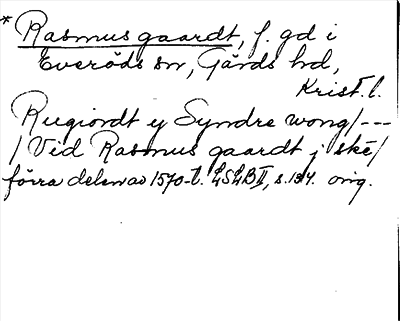 * Rasmus gaardt, f. gd i
Everöds sn, Gärds hd,
Krist. l.
Rugiordt y Syndre wong/---
/ Vid Rasmus gaardt j skê/
förra delen av 1570-t. LSLB II, s. 134. orig.